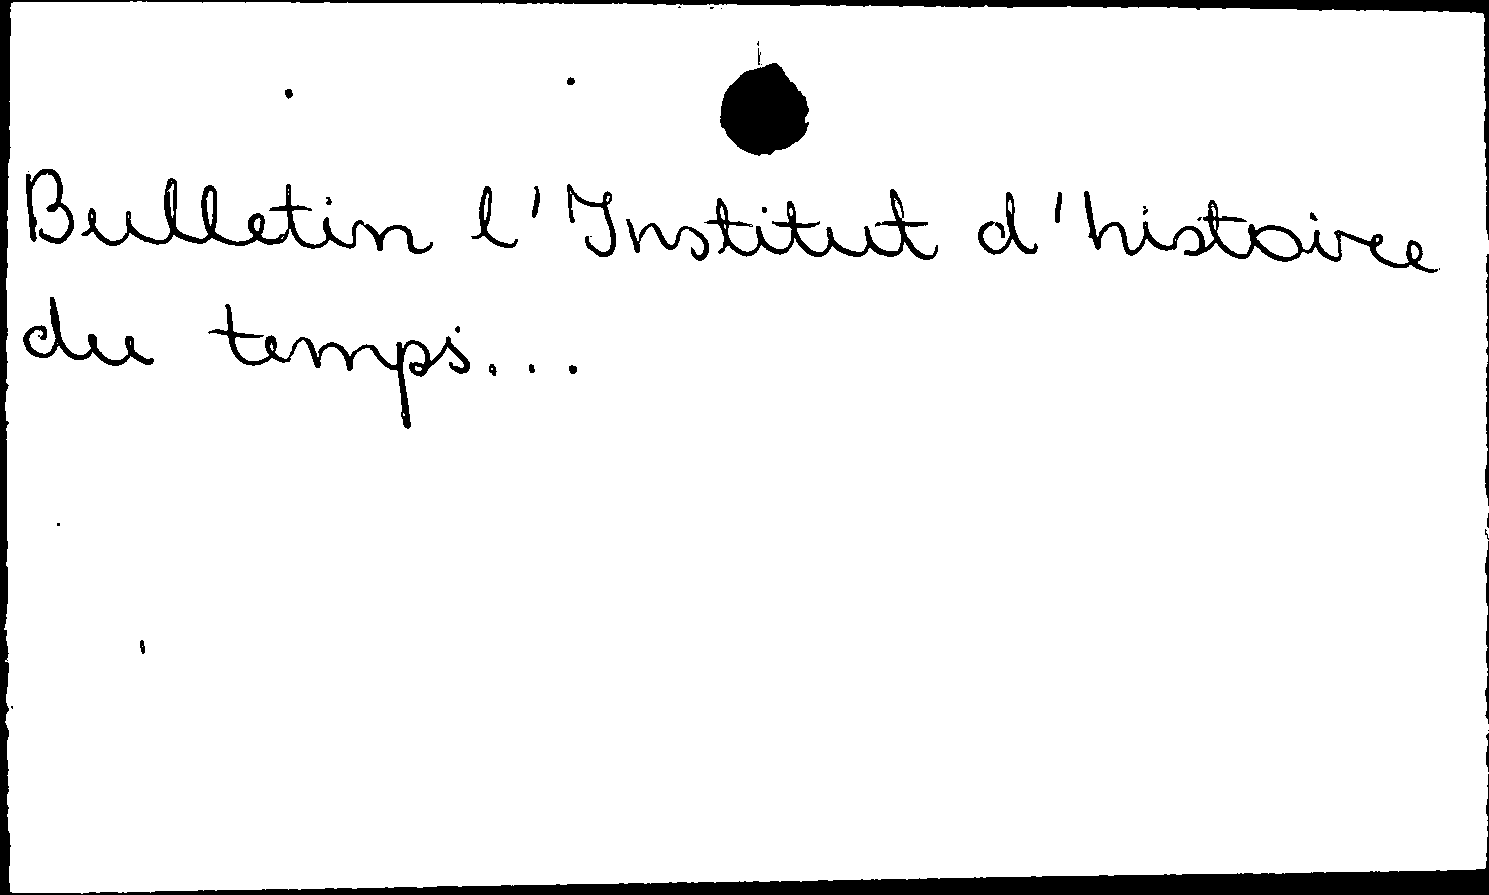 Bulletin l'Institut d'histoire
du temps...